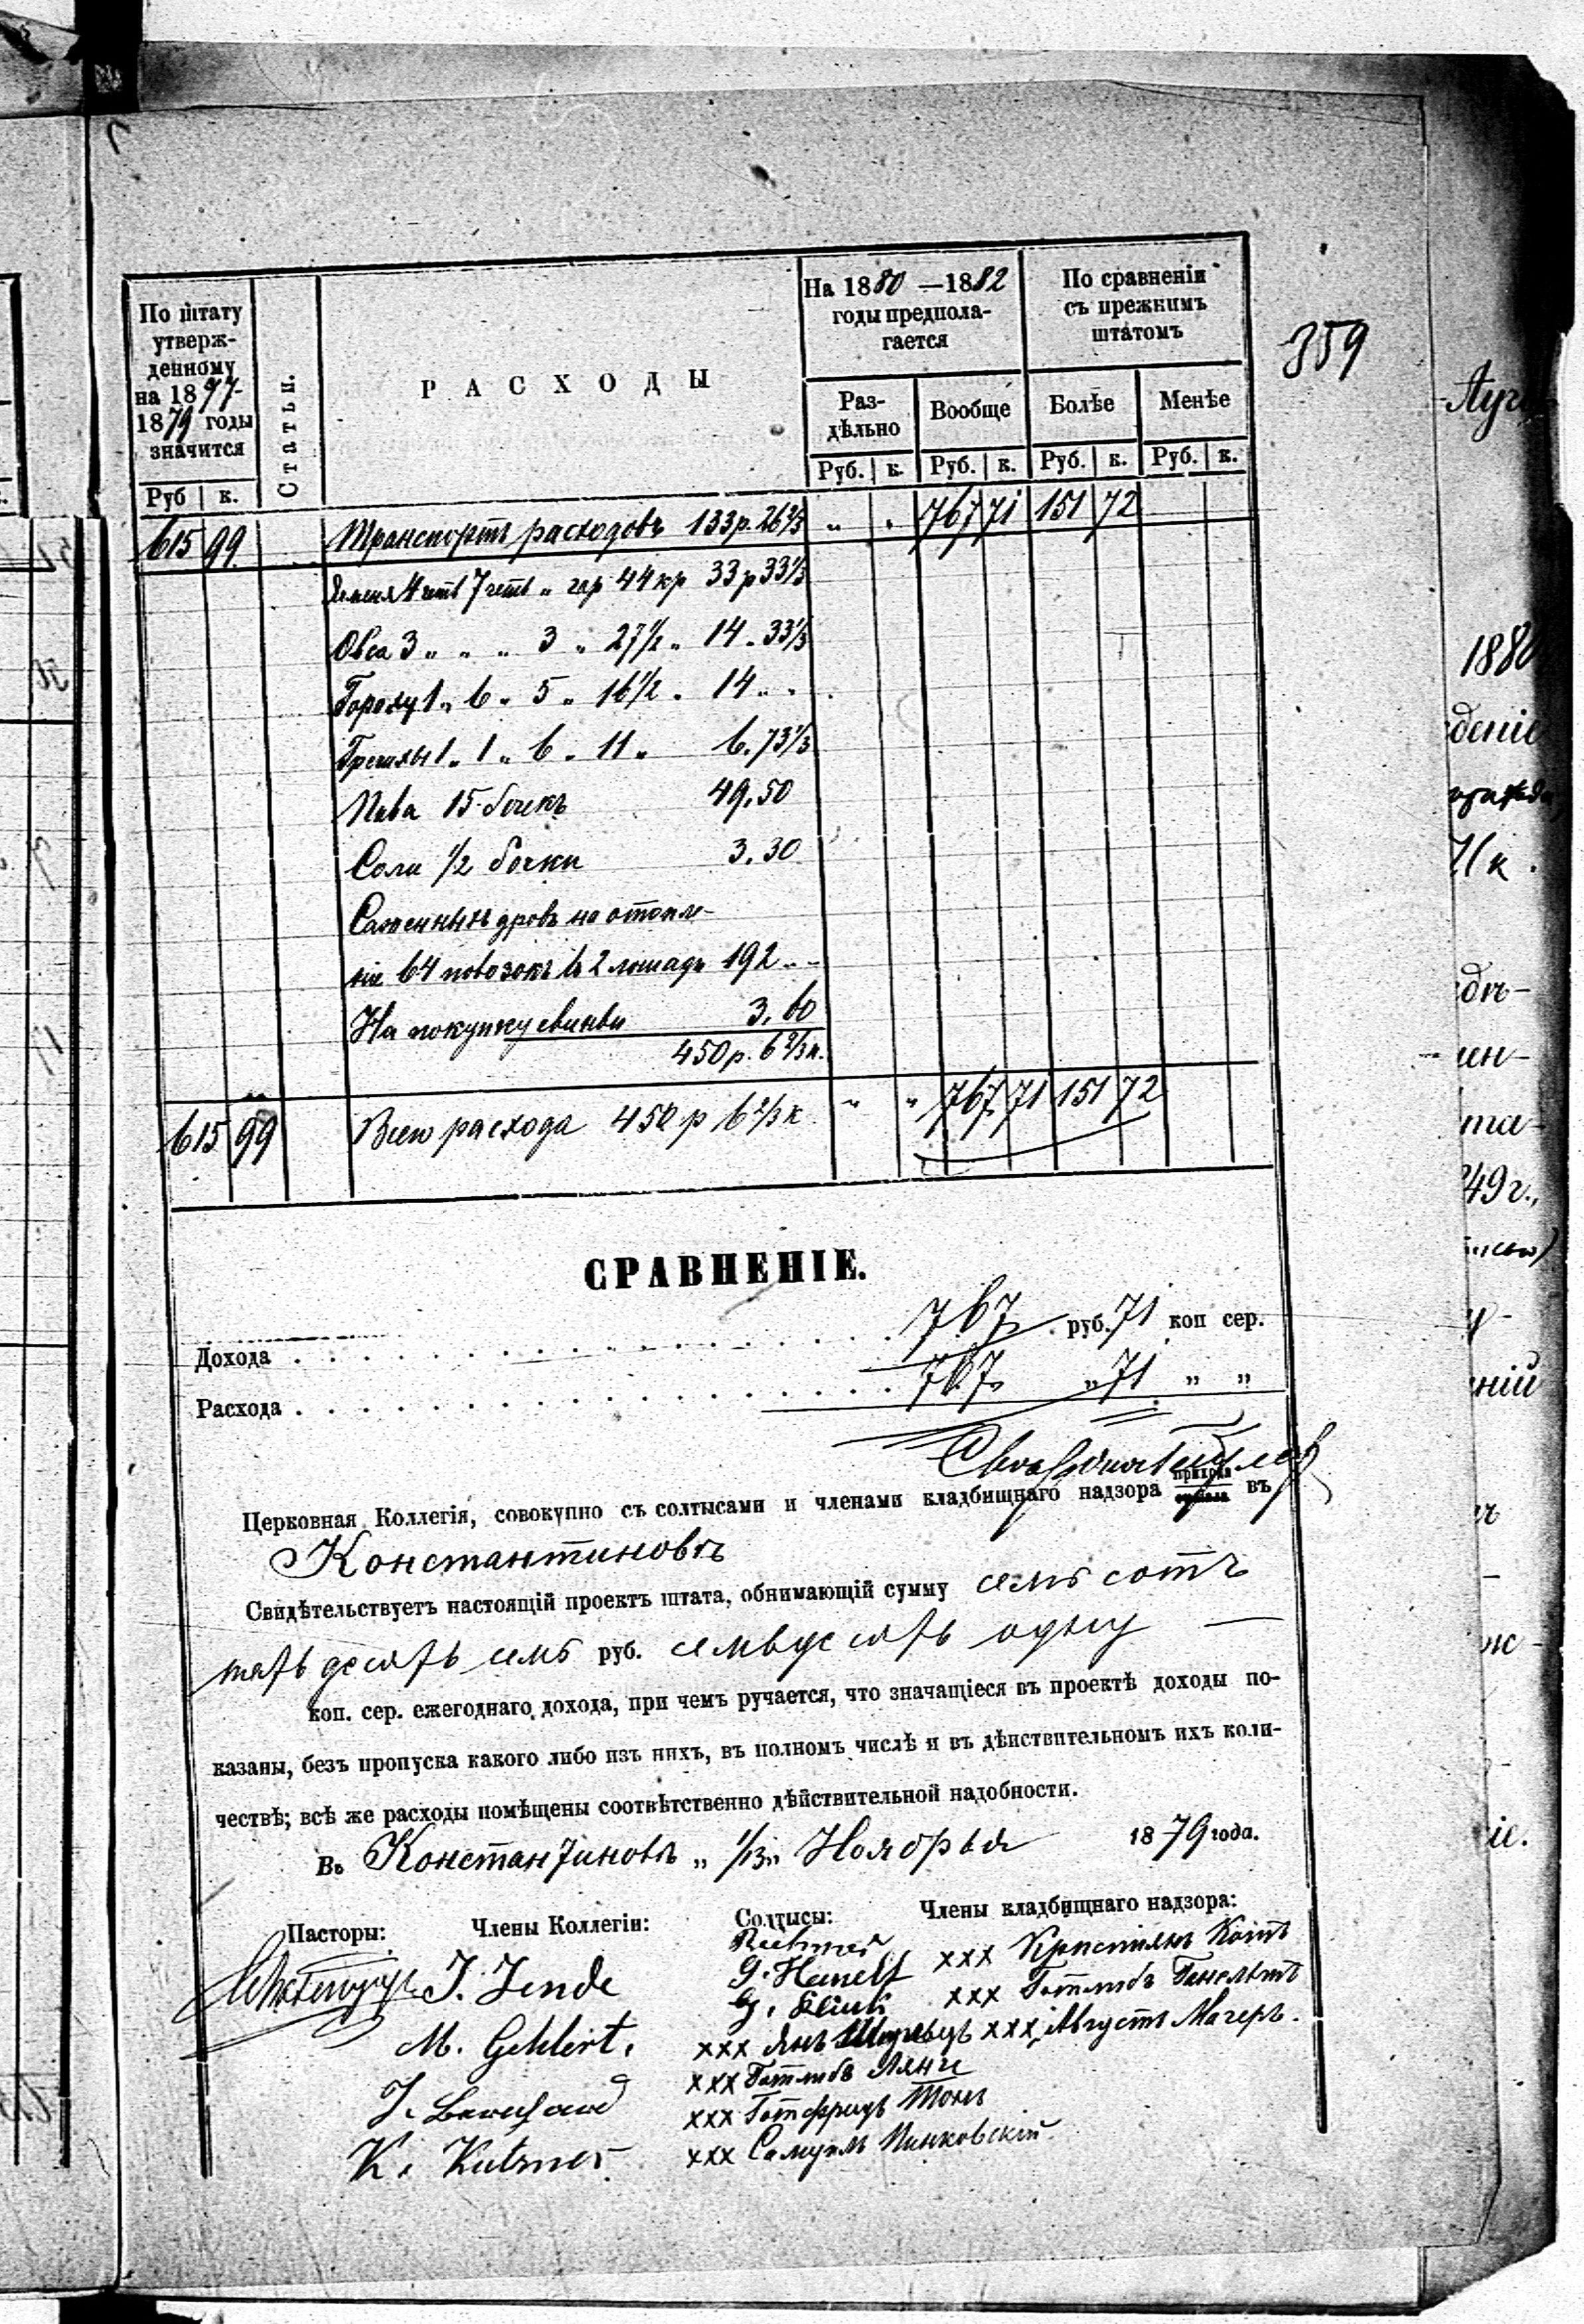 359
По штату
утверж-
денному
на 1877-
1879 годы
значится
Статьи.
РАСХОДЫ
На 1880 —1882
годы предпола-
гается
По сравненіи
съ прежнимъ
штатомъ
Раз-
дѣльно
Вообще
Болѣе
Менѣе
Руб к. Руб. к. Руб. к. Руб. к. Руб. к.
615 99 Транспортъ расходовъ 133 р. 26 2/3 „ „ 767 71 151 72
Ячменя 4 четв 7 четв „ гар 44 кр 33 р 33 1/3
Овса 3 „ „ „ 3 „ 27 1/2 „ 14 „ 33 1/3
Гороху 1 „ 6 „ 5 „ 16 1/2 „ 14 „ „
Гречихи 1 „ 1 „ 6 „ 11 „ 6. 73 1/3
Пива 15 бочекъ 49. 50
Соли 1/2 бочки 3. 30
Саженныхъ дровъ на отопле-
ніе 64 повозокъ въ 2 лошадь 192 „ –
На покупку свиньи 3. 60
450 р. 6 2/3 к.
615 99 Всего расхода 450 р 6 2/3 к „ „ 767 71 151 72
СРАВНЕНІЕ.
Дохода . . . 767 руб. 71 коп сер.
Расхода . . . 767 „ 71 „ „
Церковная Коллегія, совокупно съ солтысами и членами кладбищнаго надзора прихода въ
Константиновѣ
Свидѣтельствуетъ настоящій проектъ штата, обнимающій сумму семь сотъ
десять семь руб. семьдесять одну —
коп. сер. ежегоднаго дохода, при чемъ ручается, что значащіеся въ проектѣ доходы по-
казаны, безъ пропуска какого либо изъ нихъ, въ полномъ числѣ и въ дѣйствительномъ ихъ коли-
чествѣ; всѣ же расходы помѣщены соотвѣтственно дѣйствительной надобности.
Въ Константиновѣ „ 1/13 „ Ноября 1879 года.
Пасторы: Члены Коллегіи: Солтысы: Члены кладбищнаго надзора:
J. Jende
M. Gehlert.
K. Kutzner
G. Hanelt
xxx Янъ
xxx Готлибъ Лянге
xxx Готфридъ Тонъ
xxx Самуилъ Пинковскій
xxx Кристіянъ
xxx Готлибъ Генельтъ
xxx Августъ Магеръ.